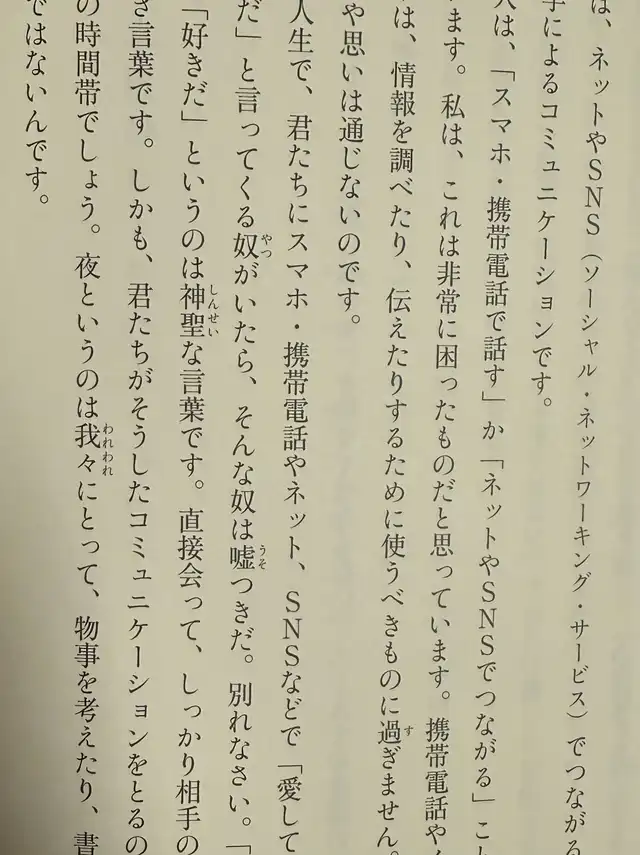 は、ネットやSNS（ソーシャル・ネットワーキング・サービス）でつながる
手によるコミュニケーションです。
人は、「スマホ・携帯電話で話す」か「ネットやSNSでつながる」こと
ます。私は、これは非常に困ったものだと思っています。携帯電話や
は、情報を調べたり、伝えたりするために使うべきものに過ぎません。
や思いは通じないのです。
人生で、君たちにスマホ・携帯電話やネット、SNSなどで「愛して
だ」と言ってくる奴がいたら、そんな奴は嘘つきだ。別れなさい。「
「好きだ」というのは神聖な言葉です。直接会って、しっかり相手の
き言葉です。しかも、君たちがそうしたコミュニケーションをとるの
の時間帯でしょう。夜というのは我々にとって、物事を考えたり、書
ではないんです。